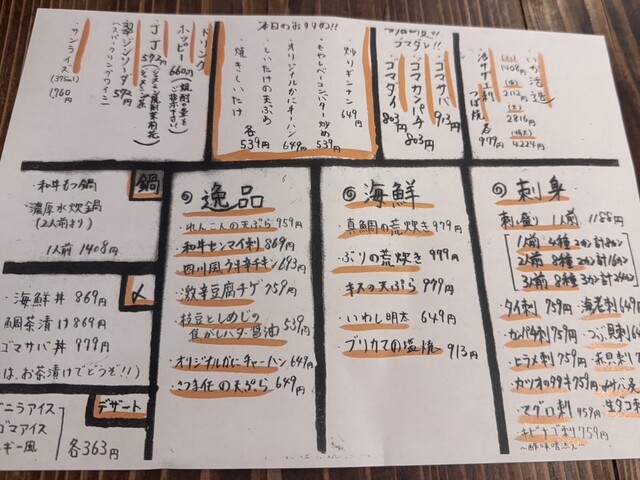 いか活造
(小) 1408円
(中) 2112円
(大) 2816円
(特大) 4224円
活サザエ刺
つぼ焼
各979円
ゴマダレ!!
ゴマサバ 913円
ゴマカンパチ 803円
ゴマダイ 803円
本日のおすすめ!!
炒りギンナン 649円
もやしベーコンバター炒め 539円
オリジナルかにチャーハン 649円
しいたけの天ぷら
焼きしいたけ
各539円
ドリンク
ホッピー 660円
JJ 572円
翠ジンソーダ 572円
(スパークリングワイン)
サンライス (375ml)
1,760円
鍋
和牛もつ鍋
濃厚水炊鍋
(2人前より)
1人前 1408円
〆
・海鮮丼 869円
鯛茶漬け 869円
ゴマサバ丼 979円
は、お茶漬けでどうぞ!!)
デザート
バニラアイス
ゴマアイス
各363円
逸品
・れんこんの天ぷら 759円
・和牛センマイ刺 869円
・四川風ウキ辛チキン 693円
・激辛豆腐チゲ 759円
・枝豆としめじの
焦がしバター醤油 539円
・オリジナルかにチャーハン 649円
・さつま任の天ぷら 649円
海鮮
・真鯛の荒炊き 979円
・ぶりの荒炊き 979円
・キスの天ぷら 979円
・いわし明太 649円
・ブリカマの塩焼 913円
刺身
刺し盛り 1人前 1188円
1人前 4種 2カン計8カン
2人前 8種 2カン計16カン
3人前 8種 3カン計24カン
・タイ刺 759円
・海老刺
・カンパチ刺 759円
・つぶ貝刺
・ヒラメ刺 759円
・カツオのタタキ 759円
・〆サバ
・マグロ刺 959円
・生タコ刺
・キビナゴ刺 759円
~酢味噌添え~